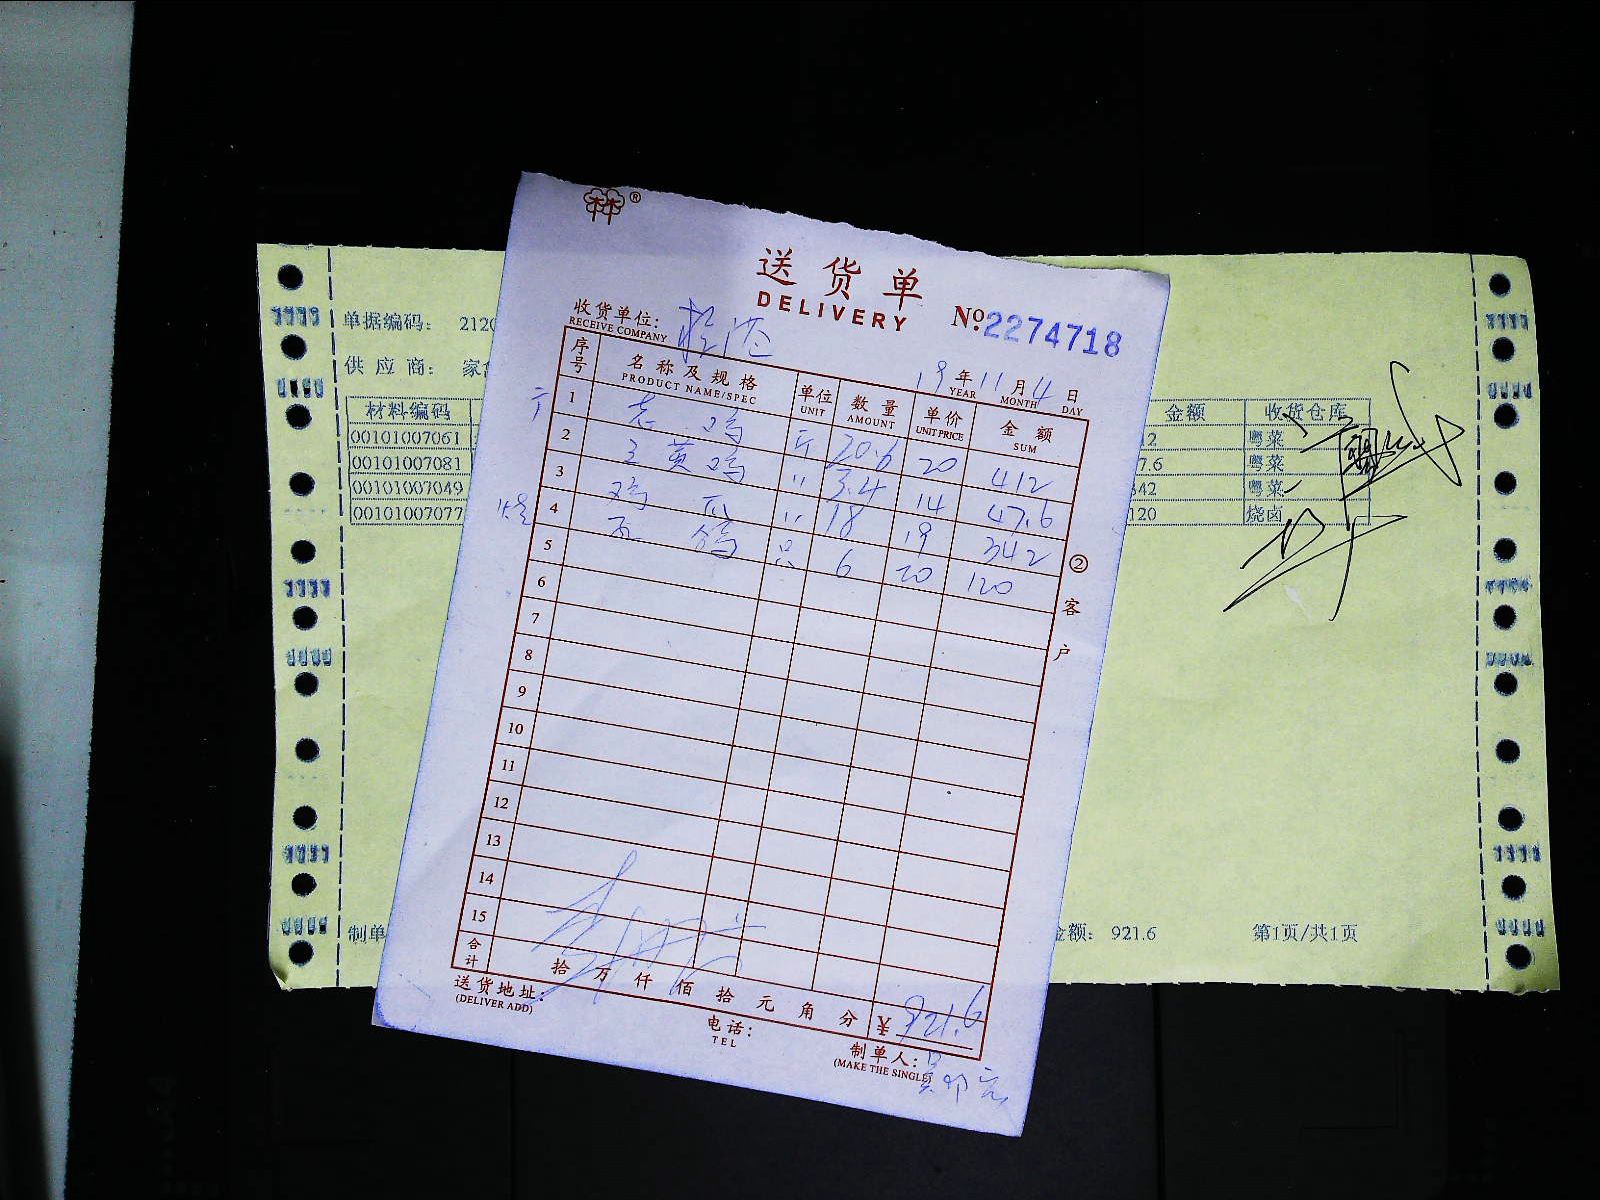 送货单
DELIVERY
№ 2274718
收货单位:
RECEIVE COMPANY
19年11月4日
YEAR MONTH DAY
序号 名称及规格 单位 数量 单价 金额
PRODUCT NAME/SPEC UNIT AMOUNT UNIT PRICE SUM
1 老鸡 斤 20.6 20 412
2 三黄鸡 〃 3.4 14 47.6
3 鸡爪 〃 18 19 342
4 乳鸽 只 6 20 120
5
6
7
8
9
10
11
12
13
14
15
合计 拾万仟佰拾元角分 ¥921.6
送货地址:
(DELIVER ADD)
电话:
TEL
制单人:
(MAKE THE SINGLE)
②客户
烧
单据编码: 2120
供应商: 家
材料编码 金额 收货仓库
00101007061 12 粤菜
00101007081 7.6 粤菜
00101007049 342 粤菜
00101007077 120 烧卤
制单
金额: 921.6 第1页/共1页